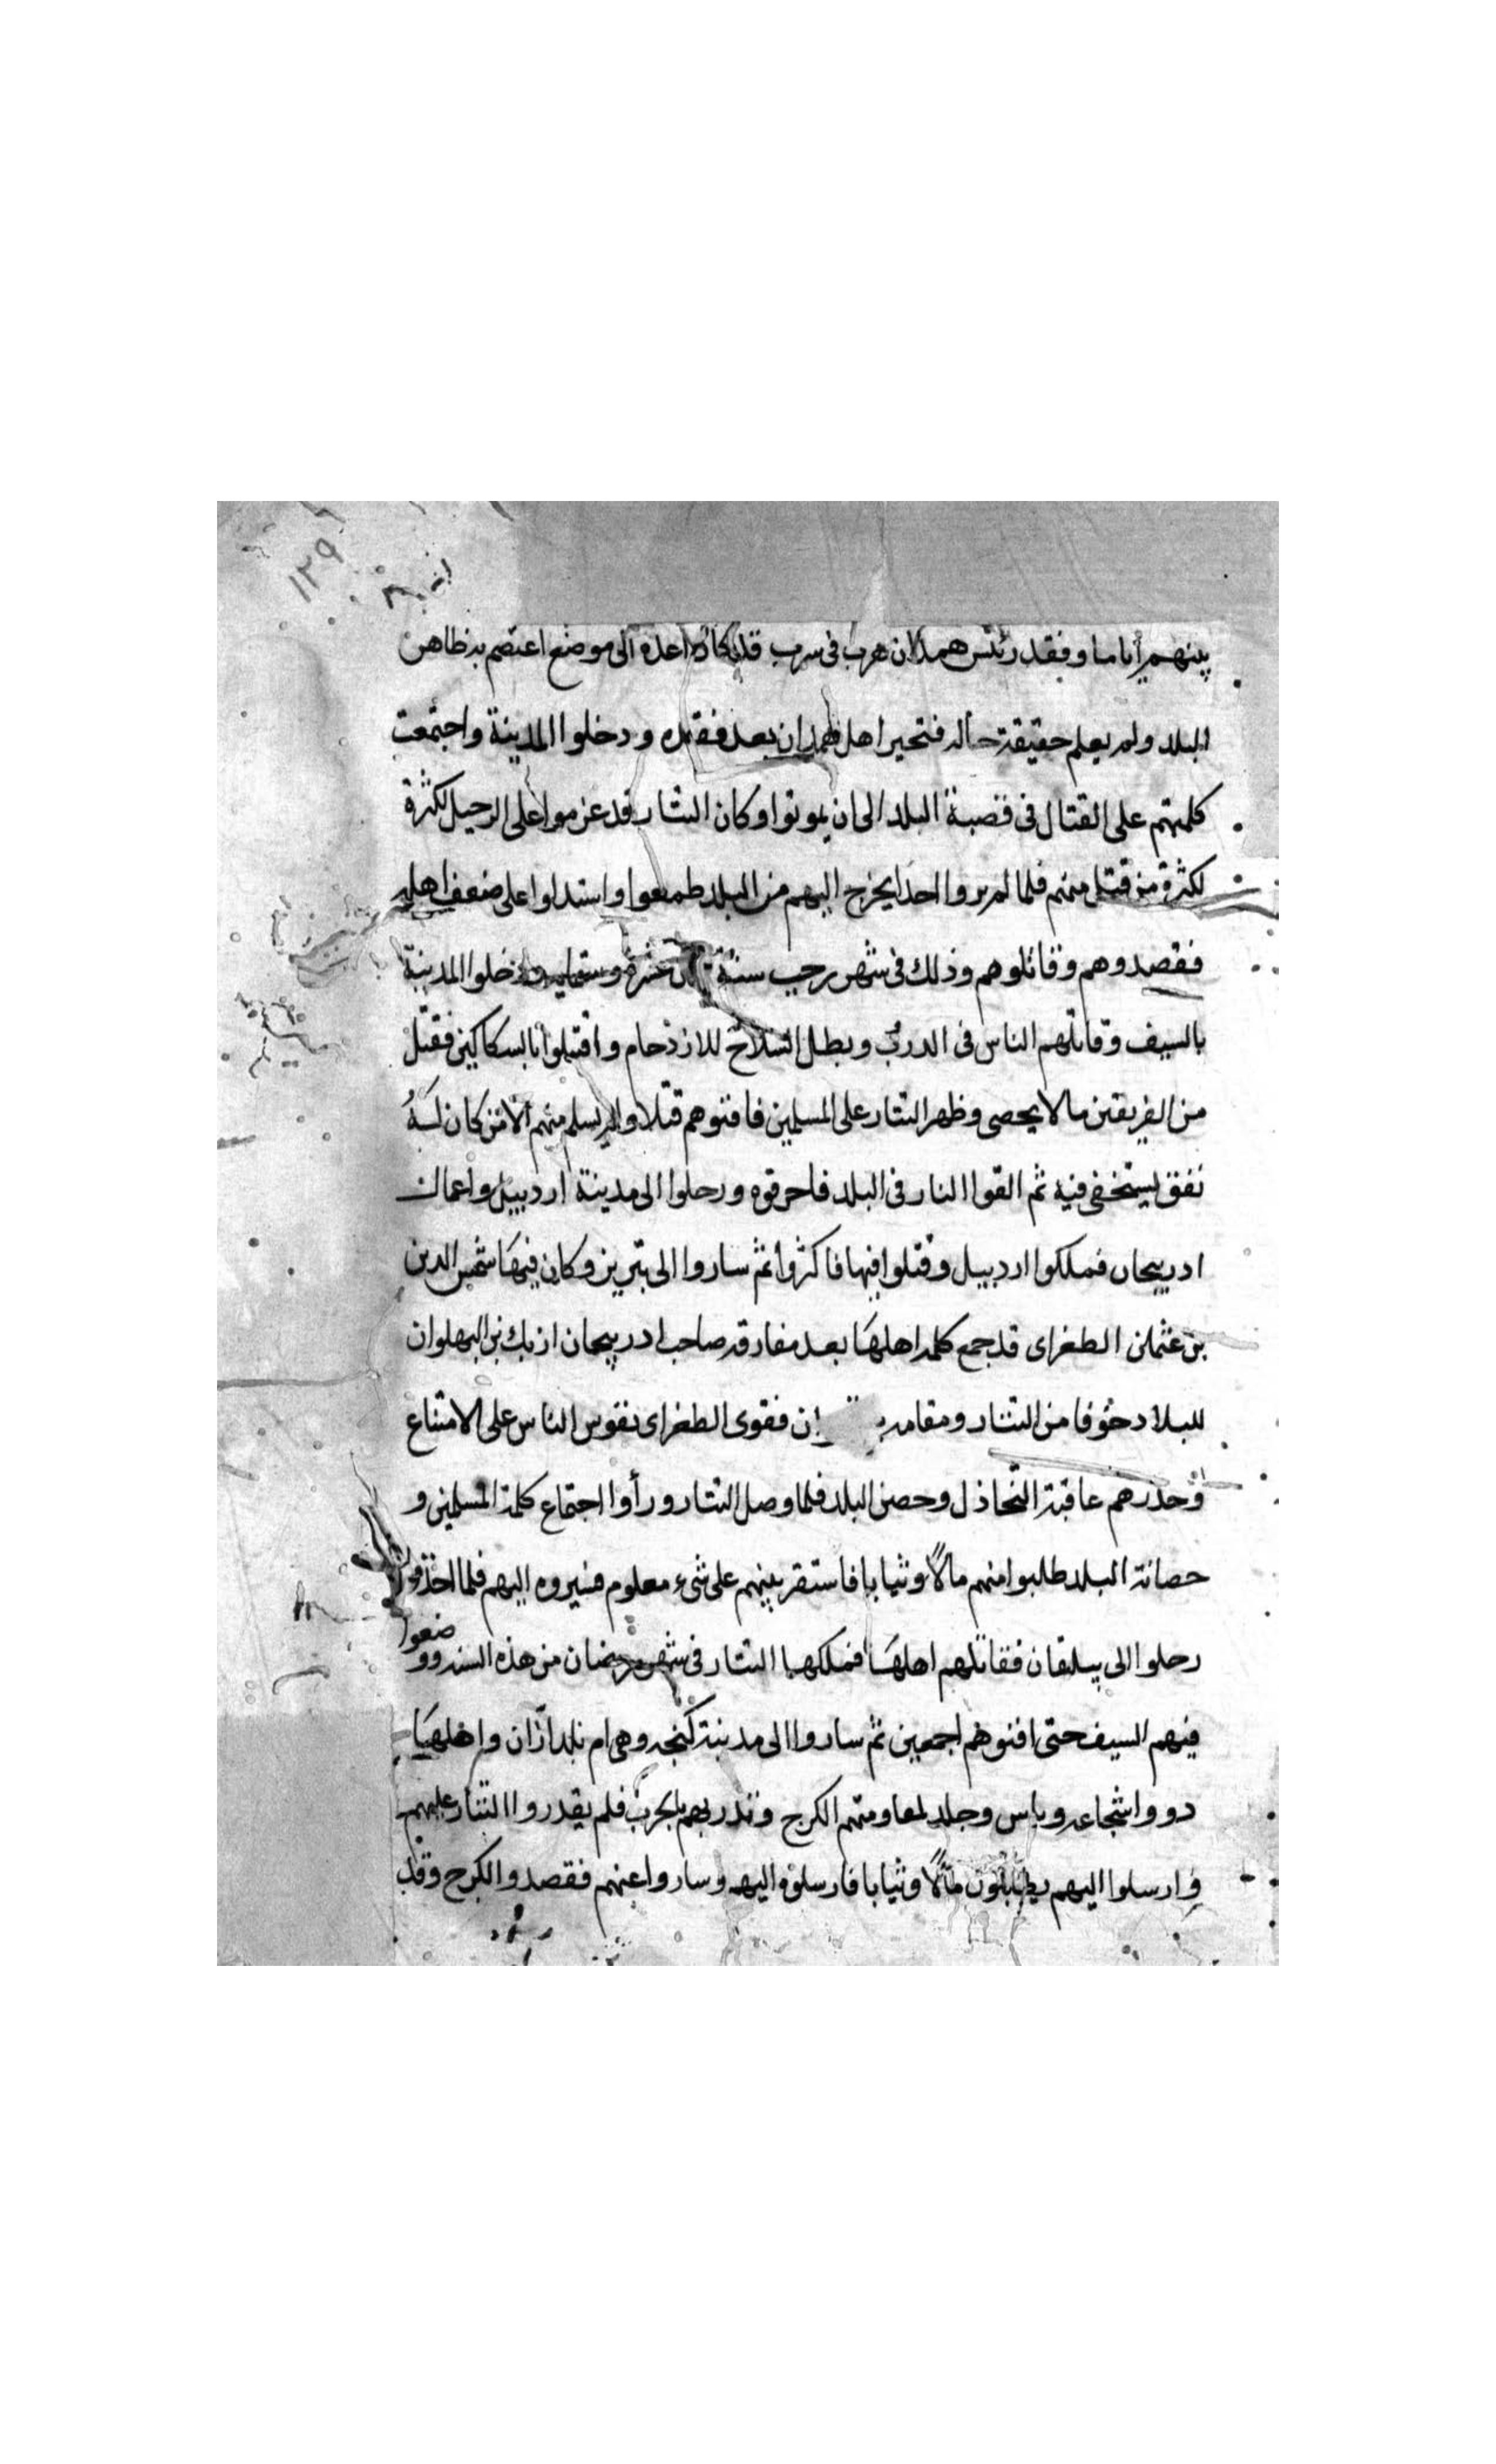 ١٢٩
بينهم أياما وفقد رئيس همدان هرب فى سرب قد كان اعده الى موضع اعتصم به ظاهر
البلد ولم يعلم حقيقة حاله فتحير اهل همدان بعد فقده ودخلوا المدينة واجتمعت
كلمتهم على القتال فى قصبة البلد الى ان يموتوا وكان التتار قد عزموا على الرحيل لكثرة
لكثرة من قتل منهم فلما لم يروا احدا يخرج اليهم من البلد طمعوا واستدلوا على ضعف اهله
فقصدوهم وقاتلوهم وذلك فى شهر رجب سنة ثمان عشرة وستمايه ودخلوا المدينة
بالسيف وقاتلهم الناس فى الدرب وبطل السلاح للازدحام واقتتلوا بالسكاكين فقتل
من الفريقين مالا يحصى وظهر التتار على المسلمين فافنوهم قتلا ولم يسلم منهم الا من كان له
نفق يستخفى فيه ثم القوا النار فى البلد فاحرقوه ورحلوا الى مدينة اردبيل واعمال
ادربيجان فملكوا اردبيل وقتلوا فيها فاكثروا ثم ساروا الى تبريز وكان فيها شمس الدين
بن عثمان الطغراى قد جمع كلمة اهلها بعد مفارقة صاحب ادربيجان ازبك بن البهلوان
للبلاد خوفا من التتار ومقامه ان فقوى الطغراى نفوس الناس على الامتناع
وحذرهم عاقبة التخاذل وحصن البلد فلما وصل التتار وراوا اجتماع كلمة المسلمين و
حصانة البلد طلبوا منهم مالاً وثيابا فاستقر بينهم على شىء معلوم فسيروه اليهم فلما اخذوه
رحلوا الى بيلقان فقاتلهم اهلها فملكها التتار فى شهر رمضان من هذه السنه ووضعوا
فيهم السيف حتى افنوهم اجمعين ثم ساروا الى مدينة كنجه وهى ام بلد ازان واهلها
دووا شجاعه وباس وجلد لمقاومتهم الكرج وتدربهم بالحرب فلم يقدروا التتار عليهم
وارسلوا اليهم يطلبون مالاً وثيابا فارسلوه اليهم وساروا عنهم فقصدوا الكرج وقد